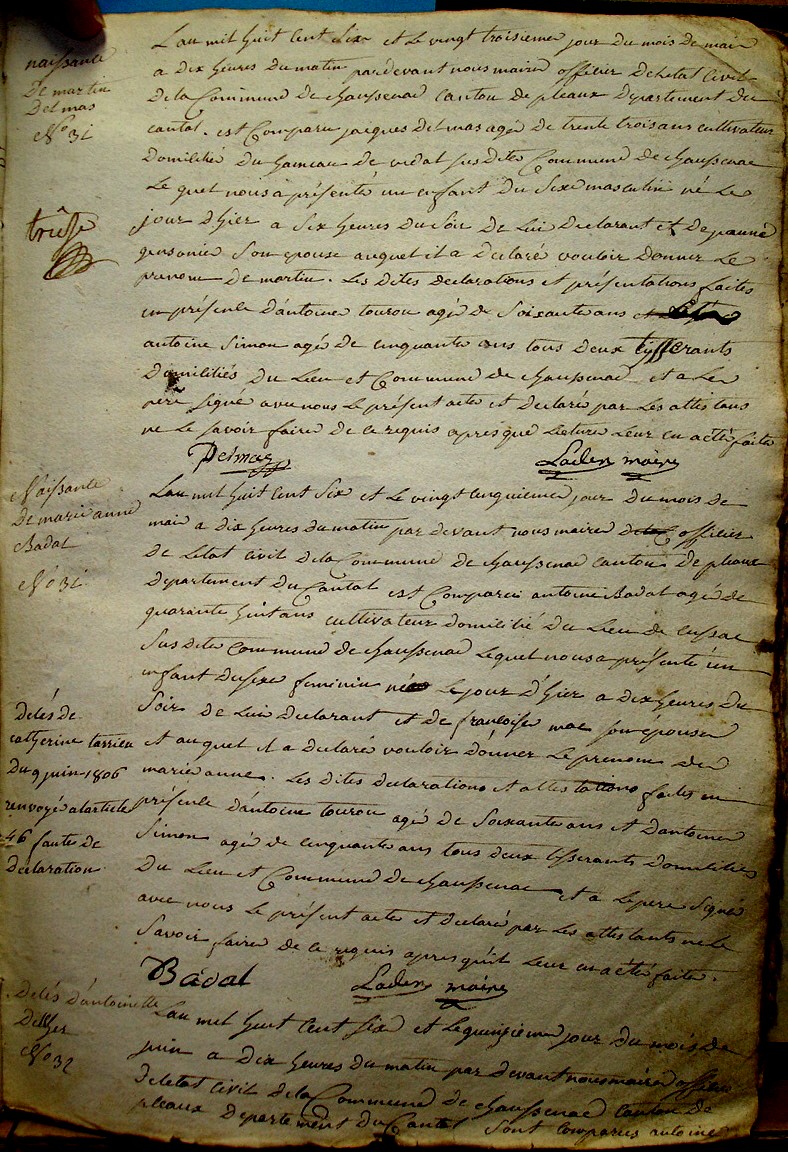 naissance
De martin
Delmas
No 31
L'an mil huit cent six et le vingt troisieme jour du mois de mai
a dix heures du matin pardevant nous maire officier de letat civil
de la Commune de chaussenac canton de pleaux departement du
cantal. est Comparu jacques delmas agé de trente trois ans cultivateur
domicilié du hameau de vedat susdite Commune de chaussenac
Le quel nous a présenté un enfant du sixe masculin né Le
jour d'hier a six heures du soir de Lui declarant et de jeanne
son epouse auquel il a declaré vouloir donner Le
prenom de martin. Les dites declarations et présentations faites
en présence d'antoine tourou agé de soixante ans
antoine simon agé de cinquante ans tous deux tisserants
domiciliés du Lieu et Commune de chaussenac et a Le
pere signé avec nous Le présent acte et declaré par Les attestans
ne Le savoir faire de ce requis apres que Lecture Leur en a été faite
Delmas Laden maire
Naissance
De marie anne
Badal
No 31
L'an mil huit cent six et Le vingt cinquieme jour du mois de
mai a dix heures du matin par devant nous maire officier
de Letat civil de la Commune de chaussenac canton de pleaux
departement du Cantal est Comparu antoine Badal agé de
quarante huit ans cultivateur domicilié du Lieu de cussac
susdite commune de chaussenac Lequel nous a présenté un
enfant du sexe feminin née Le jour d'hier a dix heures du
soir de Lui declarant et de françoise mac son épouse
et auquel il a declaré vouloir donner Le prenom de
marie anne. Les dites declarations et attestations faites en
présence d'antoine tourou agé de soixante ans et d'antoine
simon agé de cinquante ans tous deux tisserants domiciliés
du Lieu et Commune de chaussenac et a Le pere signé
avec nous Le présent acte et declaré par Les attestants ne Le
savoir faire de ce requis apres qu'il Leur en a été faite.
Badal Laden maire
Delés de
catherine tarrieu
du 9 juin 1806
renvoyé a larticle
46 faute de
declaration
Delés d'antoinette
No 32
L'an mil huit cent six et Le quinzieme jour du mois de
juin a dix heures du matin par devant nous maire officier
de letat civil de la Commune de chaussenac canton de
pleaux departement du Cantal sont comparus antoine